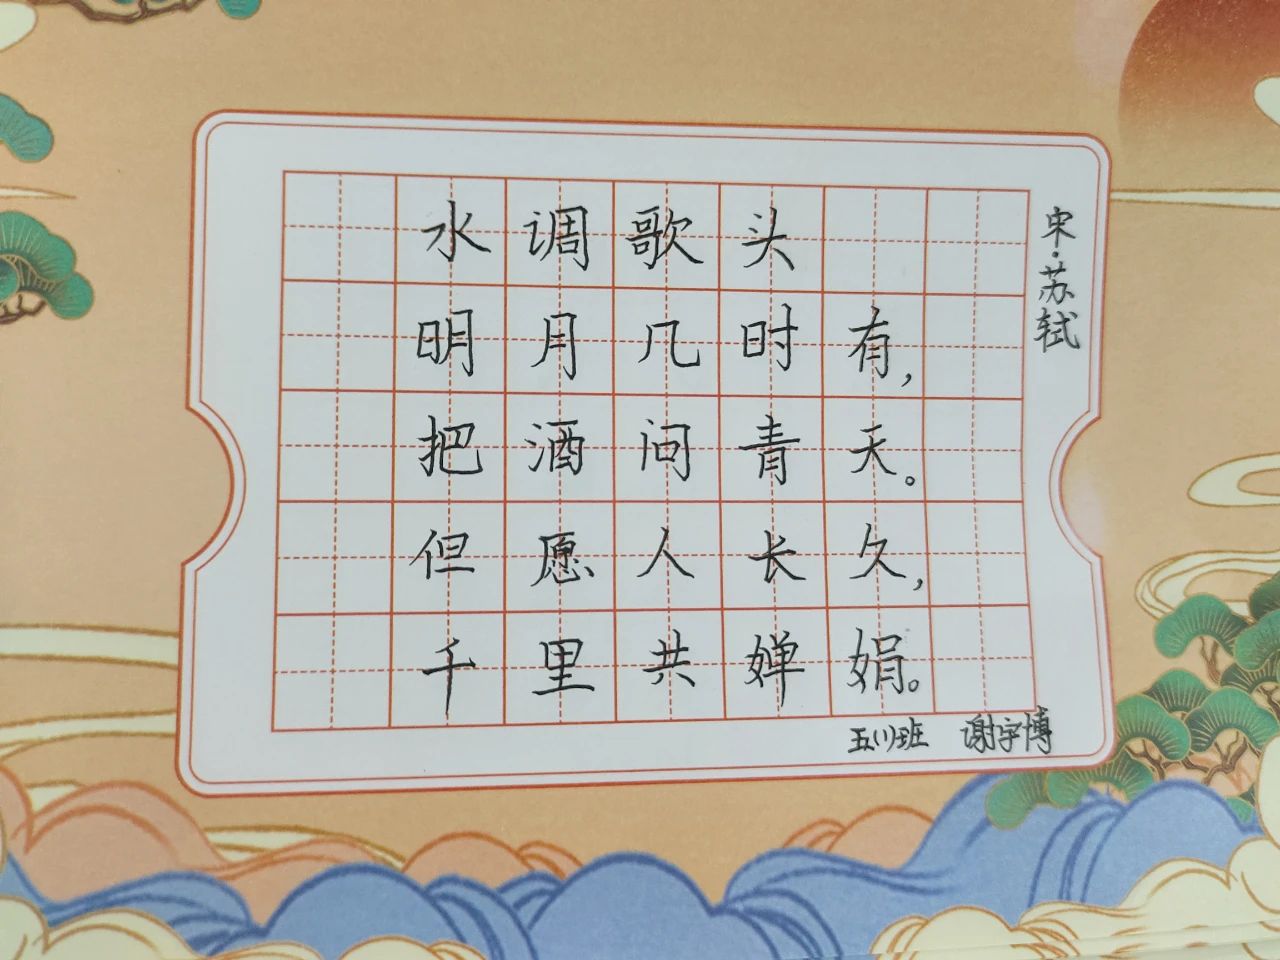 水调歌头
宋·苏轼
明月几时有，
把酒问青天。
但愿人长久，
千里共婵娟。
五(1)班 谢宇博